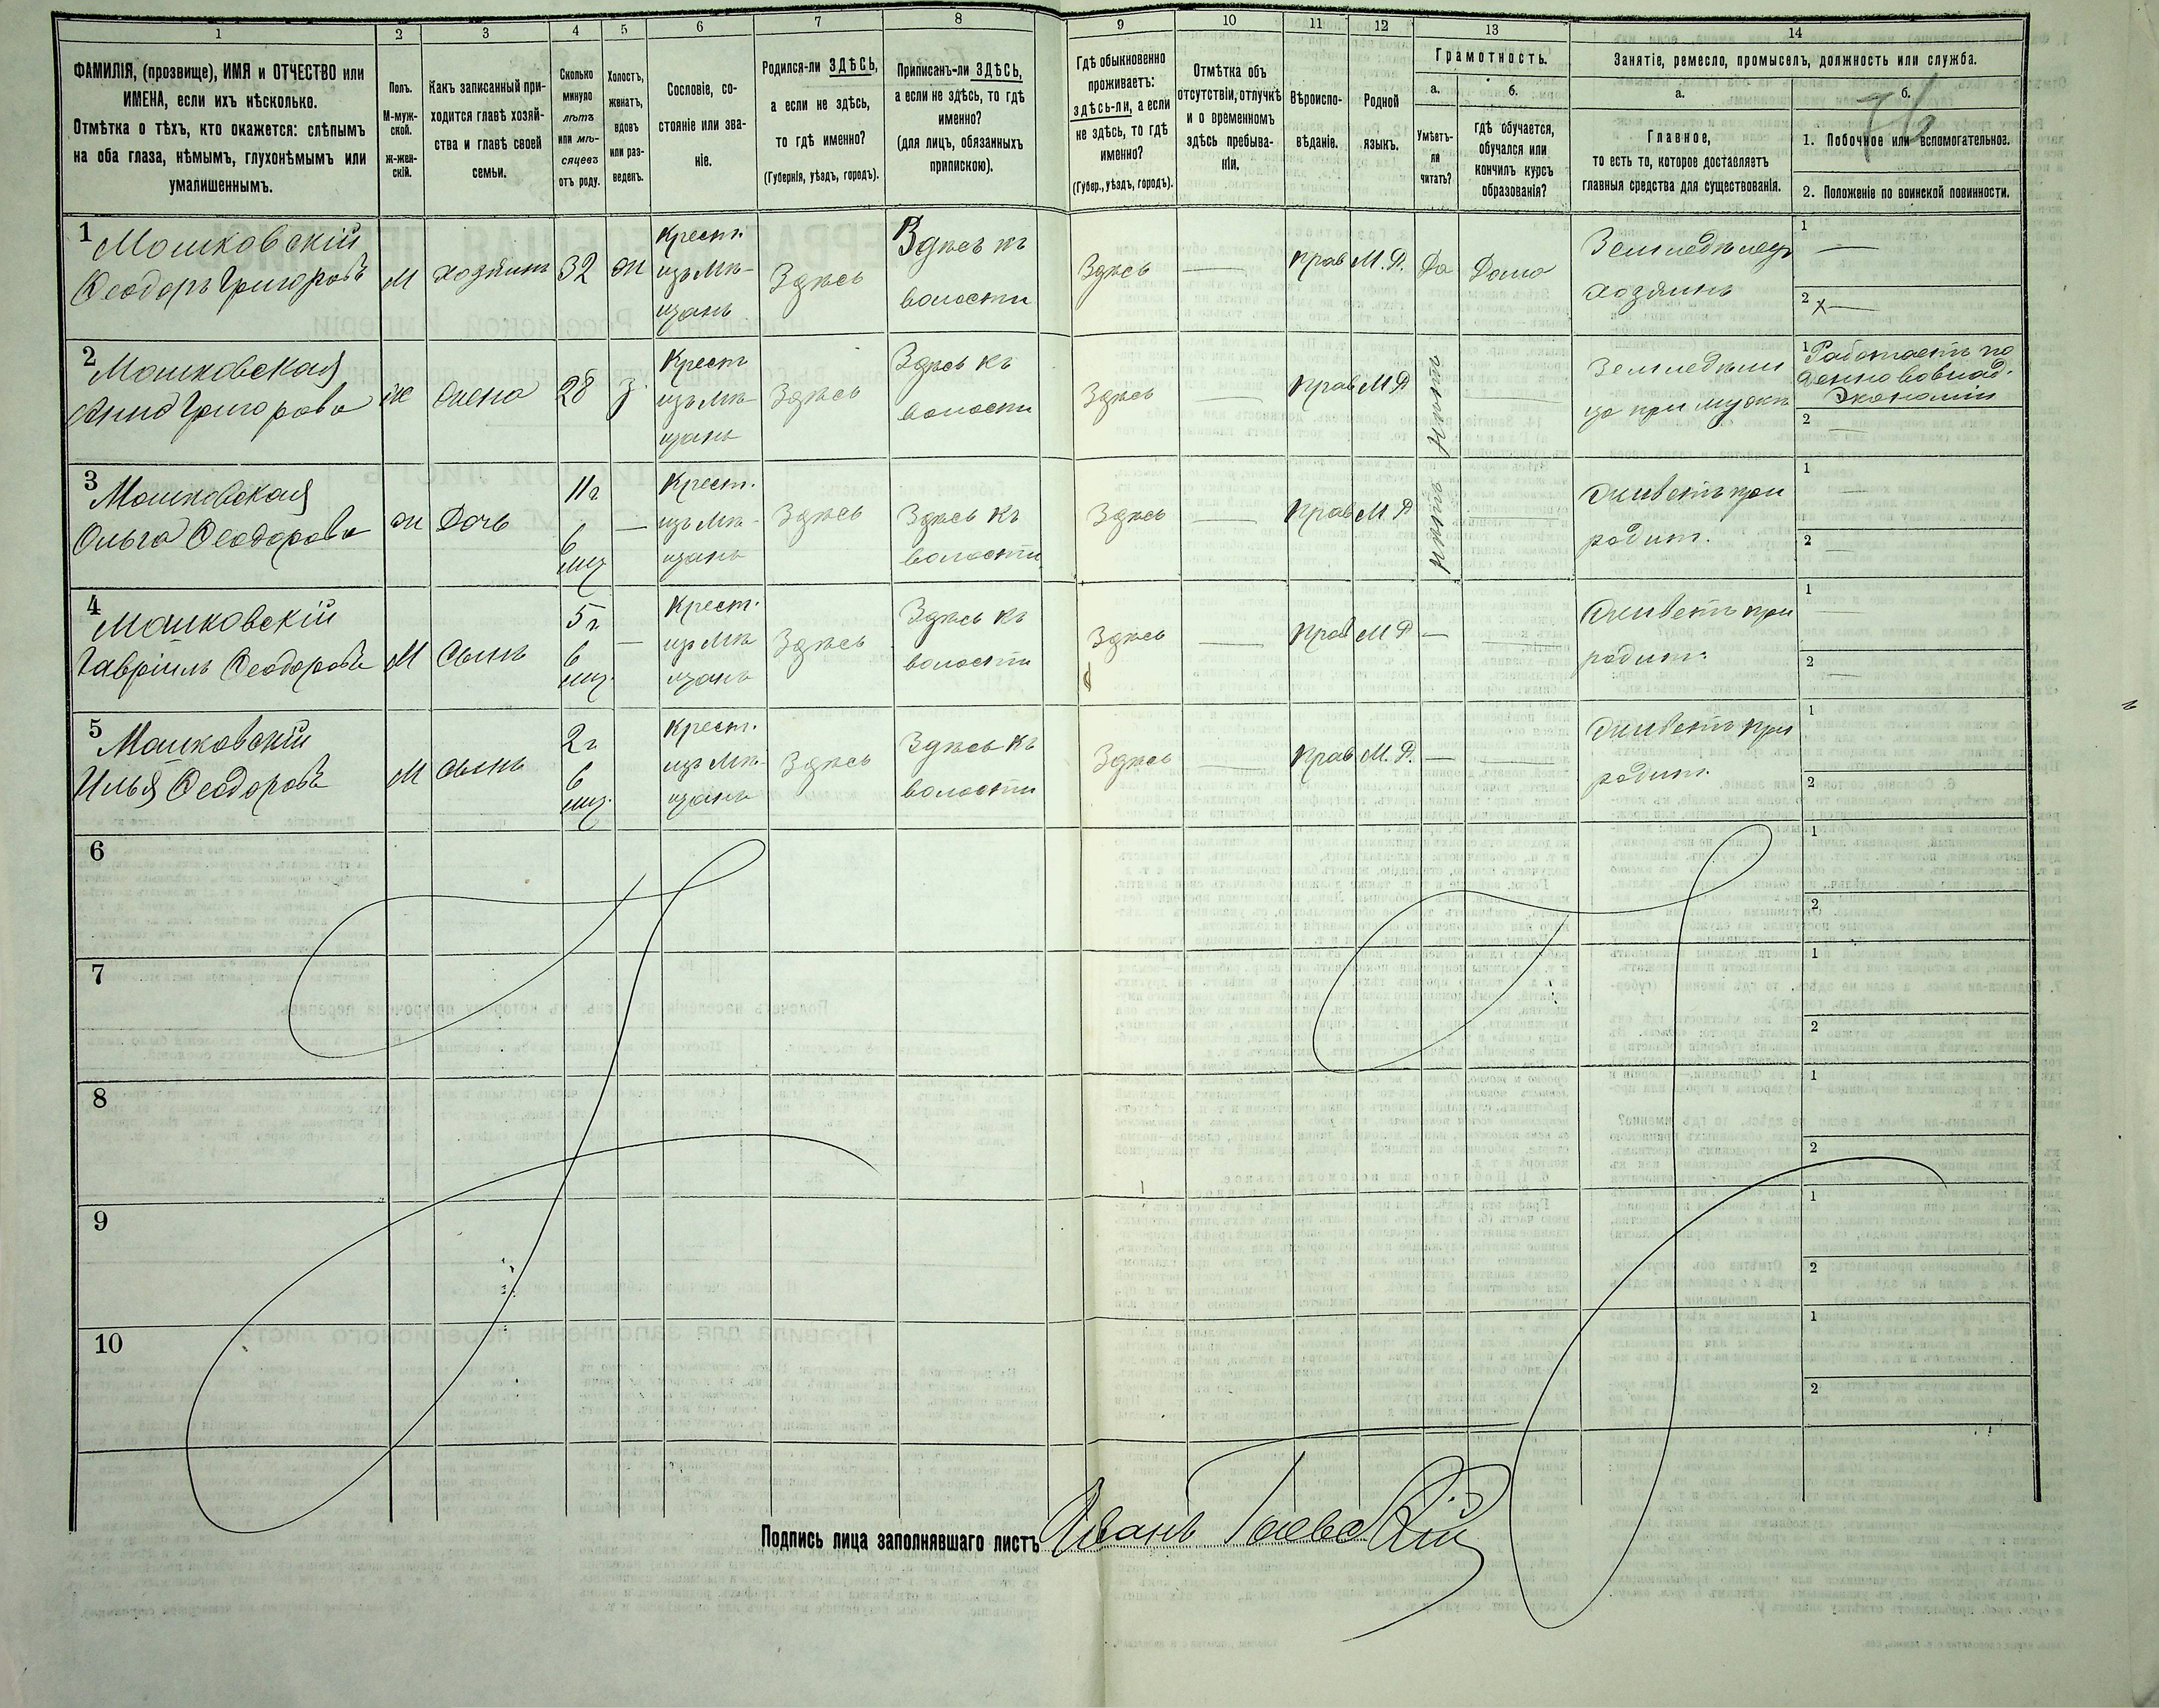 1 2 3 4 5 6 7 8 9 10 11 12 13 14
ФАМИЛІЯ, (прозвище), ИМЯ и ОТЧЕСТВО или
ИМЕНА, если ихъ нѣсколько.
Отмѣтка о тѣхъ, кто окажется: слѣпымъ
на оба глаза, нѣмымъ, глухонѣмымъ или
умалишеннымъ.
Полъ.
М-муж-
ской.
ж-жен-
скій.
Какъ записанный при-
ходится главѣ хозяй-
ства и главѣ своей
семьи.
Сколько
минуло
лѣтъ
или мѣ-
сяцевъ
отъ роду.
Холостъ,
женатъ,
вдовъ
или раз-
веденъ.
Сословіе, со-
стояніе или зва-
ніе.
Родился-ли ЗДѢСЬ,
а если не здѣсь,
то гдѣ именно?
(Губернія, уѣздъ, городъ).
Приписанъ-ли ЗДѢСЬ,
а если не здѣсь, то гдѣ
именно?
(для лицъ, обязанныхъ
припискою).
Гдѣ обыкновенно
проживаетъ:
здѣсь-ли, а если
не здѣсь, то гдѣ
именно?
(Губер., уѣздъ, городъ).
Отмѣтка объ
отсутствіи, отлучкѣ
и о временномъ
здѣсь пребыва-
ніи.
Вѣроиспо-
вѣданіе.
Родной
языкъ.
Грамотность.
а.
Умѣетъ-
ли
читать?
б.
гдѣ обучается,
обучался или
кончилъ курсъ
образованія?
Занятіе, ремесло, промыселъ, должность или служба.
а.
Главное,
то есть то, которое доставляетъ
главныя средства для существованія.
б.
76
1. Побочное или вспомогательное.
2. Положеніе по воинской повинности.
1 Мошковскій
Ѳеодоръ Григоровъ
М
хозяинъ
32
ж
Крест.
изъ мѣ-
щанъ
Здѣсь
Здѣсь къ
волости
Здѣсь
—
Прав
М. Р.
Да
Дома
Земледѣлецъ
хозяинъ
1 —
2 х —
2 Мошковская
Анна Григорова
ж
Жена
28
з.
Крестъ
изъ мѣ-
щанъ
Здѣсь
Здѣсь къ
волости
Здѣсь
—
Прав
М Р
нѣтъ
—
Земледѣли
ца при мужѣ
1 Работаетъ по
Экономіи
2 —
3 Мошковская
Ольга Ѳеодорова
ж
Дочь
11 г
6
мц
—
Крест.
изъ мѣ-
щанъ
Здѣсь
Здѣсь къ
волости
Здѣсь
—
Прав
М Р
нѣтъ
—
Живетъ при
родит.
1 —
2 —
4 Мошковскій
Гавріилъ Ѳеодоровъ
М
Сынъ
5 г
6
мц.
—
Крест.
изъ мѣ
щанъ
Здѣсь
Здѣсь къ
волости
Здѣсь
—
Прав
М Р
—
—
Живетъ при
родит.
1 —
2 —
5 Мошковскій
Илья Ѳеодоровъ
М
сынъ
2 г
6
мц.
Крест.
изъ мѣ-
щанъ
Здѣсь
Здѣсь къ
волости
Здѣсь
—
Прав
М. Р.
—
—
Живетъ при
родит.
1
2
6
1
2
7
1
2
8
1
2
9
1
2
10
1
2
Подпись лица заполнявшаго листъ Иванъ Гаевскій